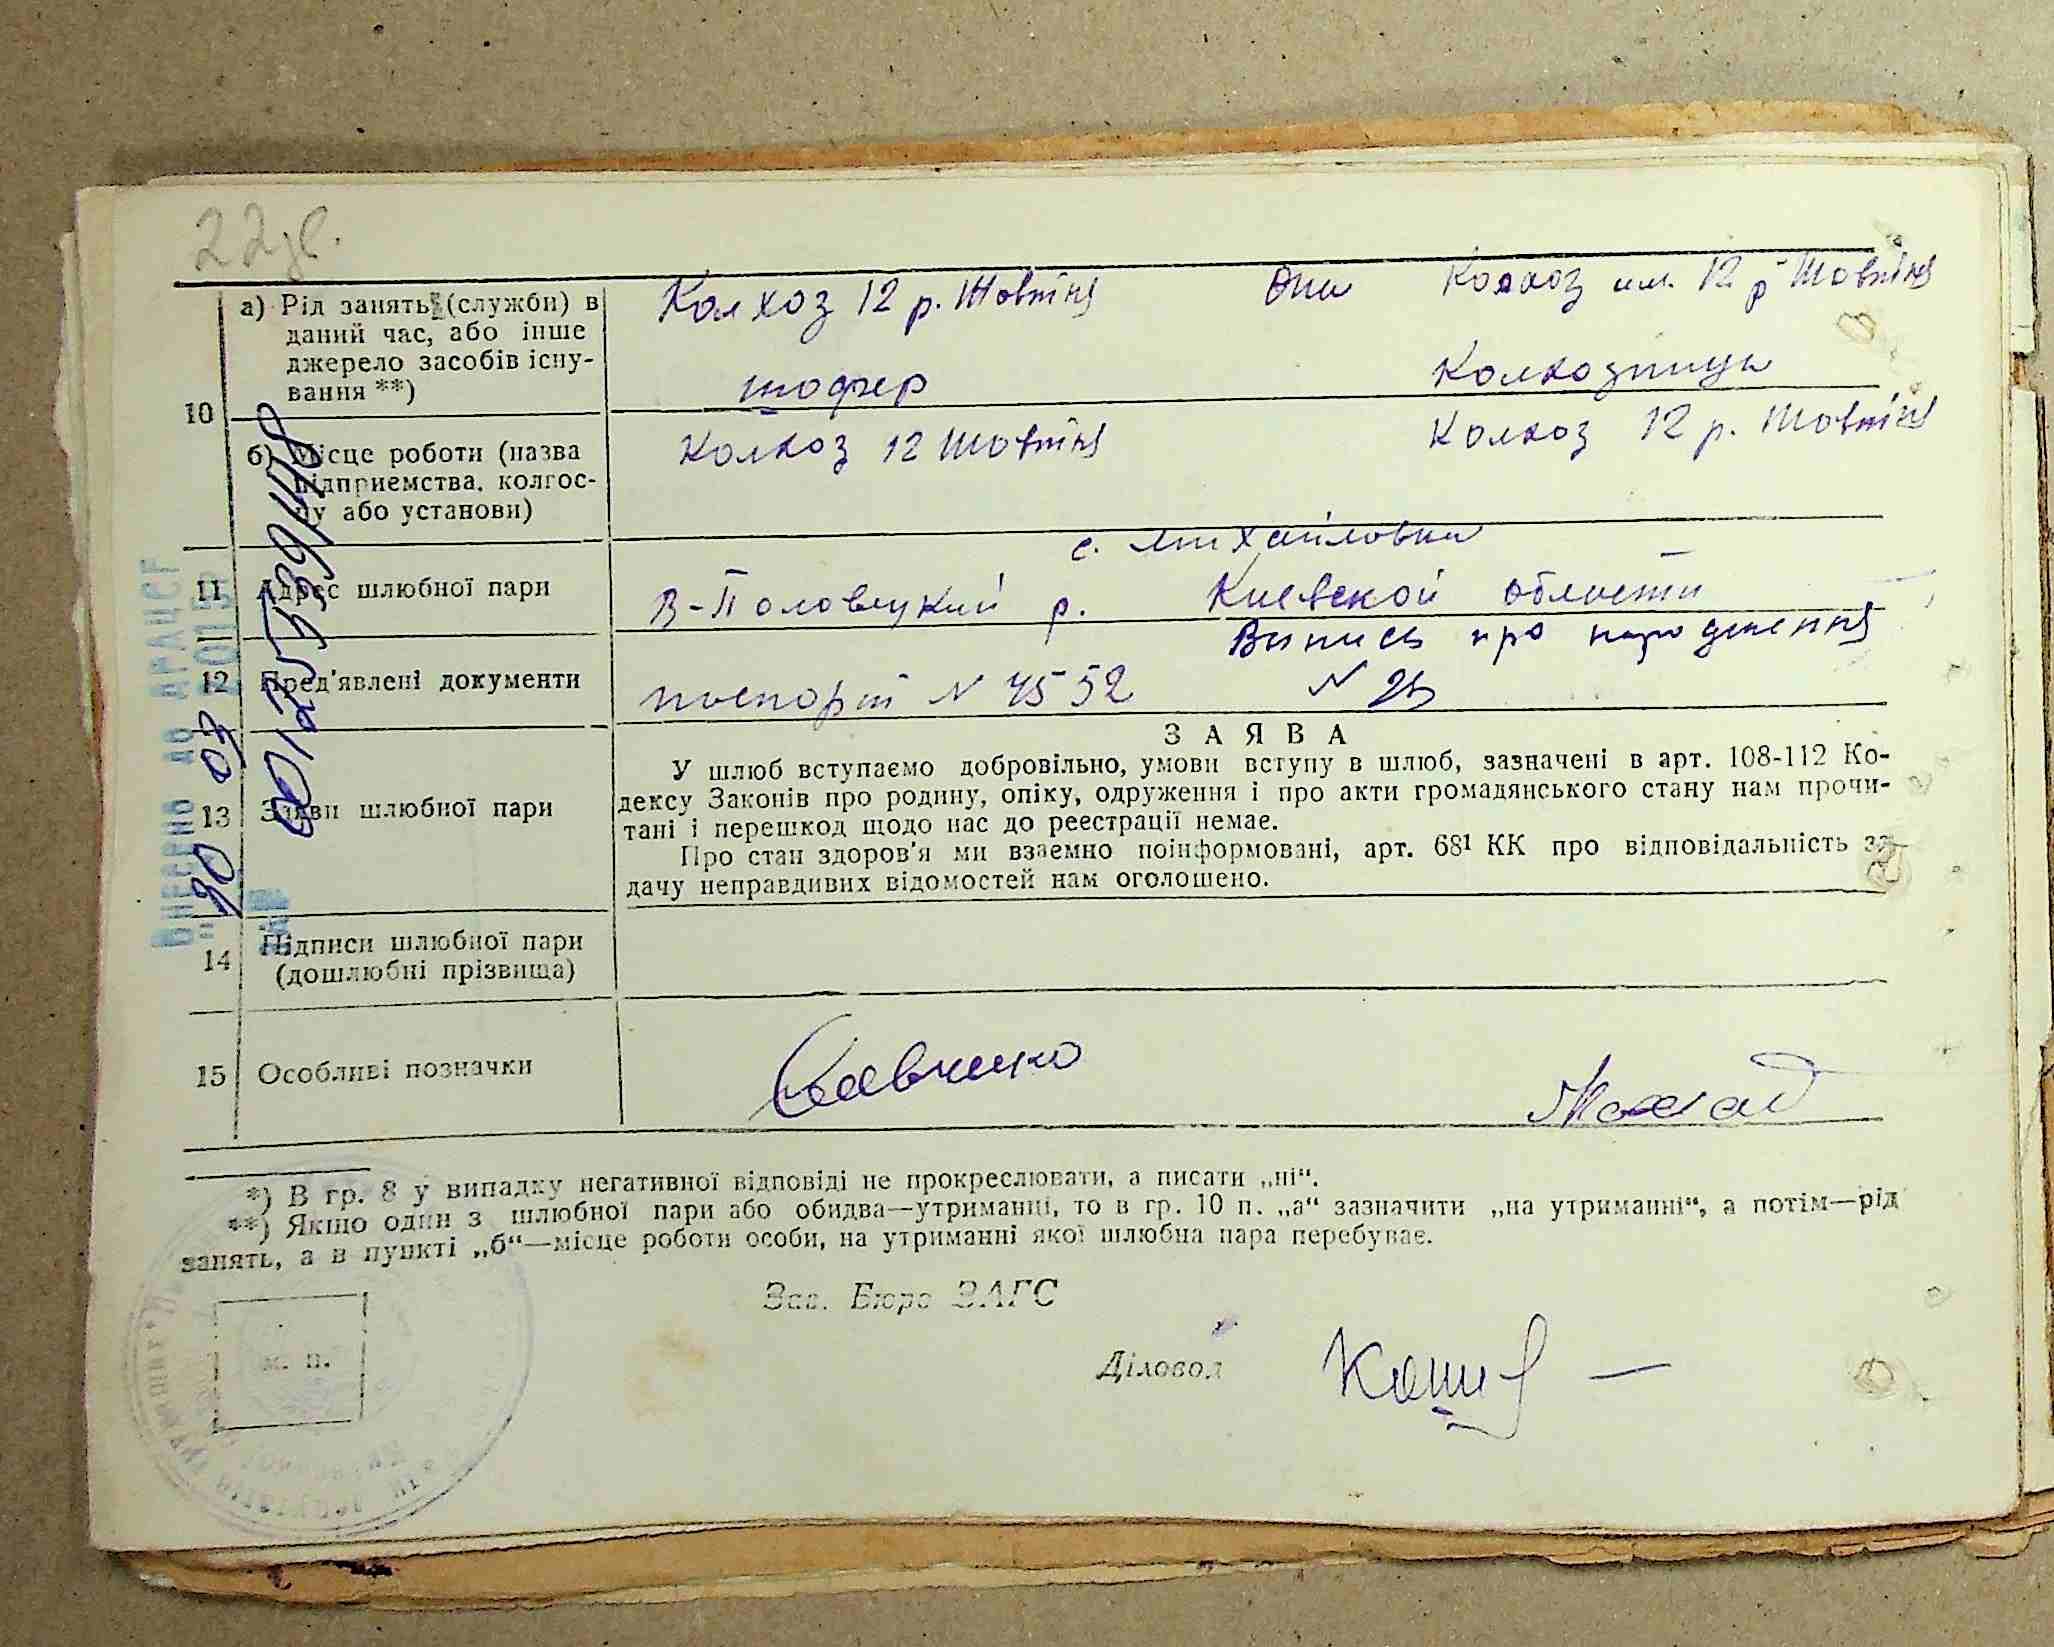 22
а) Рід занять (служби) в даний час, або інше джерело засобів існування **)
Колхоз 12 р. Жовтня Она Колхоз им. 12 р Жовтня
10
шофер Колхозница
б) Місце роботи (назва підприємства, колгоспу або установи)
Колхоз 12 Жовтня Колхоз 12 р. Жовтня
с. Михайловка
11 Адрес шлюбної пари
В-Половецкий р. Киевской области
Випись про народження
12 Пред'явлені документи
паспорт N 4552 N 25
13 Заяви шлюбної пари
ЗАЯВА
У шлюб вступаємо добровільно, умови вступу в шлюб, зазначені в арт. 108-112 Ко-
дексу Законів про родину, опіку, одруження і про акти громадянського стану нам прочи-
тані і перешкод щодо нас до реєстрації немає.
Про стан здоров'я ми взаємно поінформовані, арт. 68¹ КК про відповідальність за
дачу неправдивих відомостей нам оголошено.
14 Підписи шлюбної пари
(дошлюбні прізвища)
15 Особливі позначки
Савченко
*) В гр. 8 у випадку негативної відповіді не прокреслювати, а писати „ні“.
**) Якщо один з шлюбної пари або обидва—утриманці, то в гр. 10 п. „а“ зазначити „на утриманні“, а потім—рід
занять, а в пункті „б“—місце роботи особи, на утриманні якої шлюбна пара перебуває.
Зав. Бюро ЗАГС
Діловод
м. п.
Внесено до ДРАЦСГ
"30 03 2015р